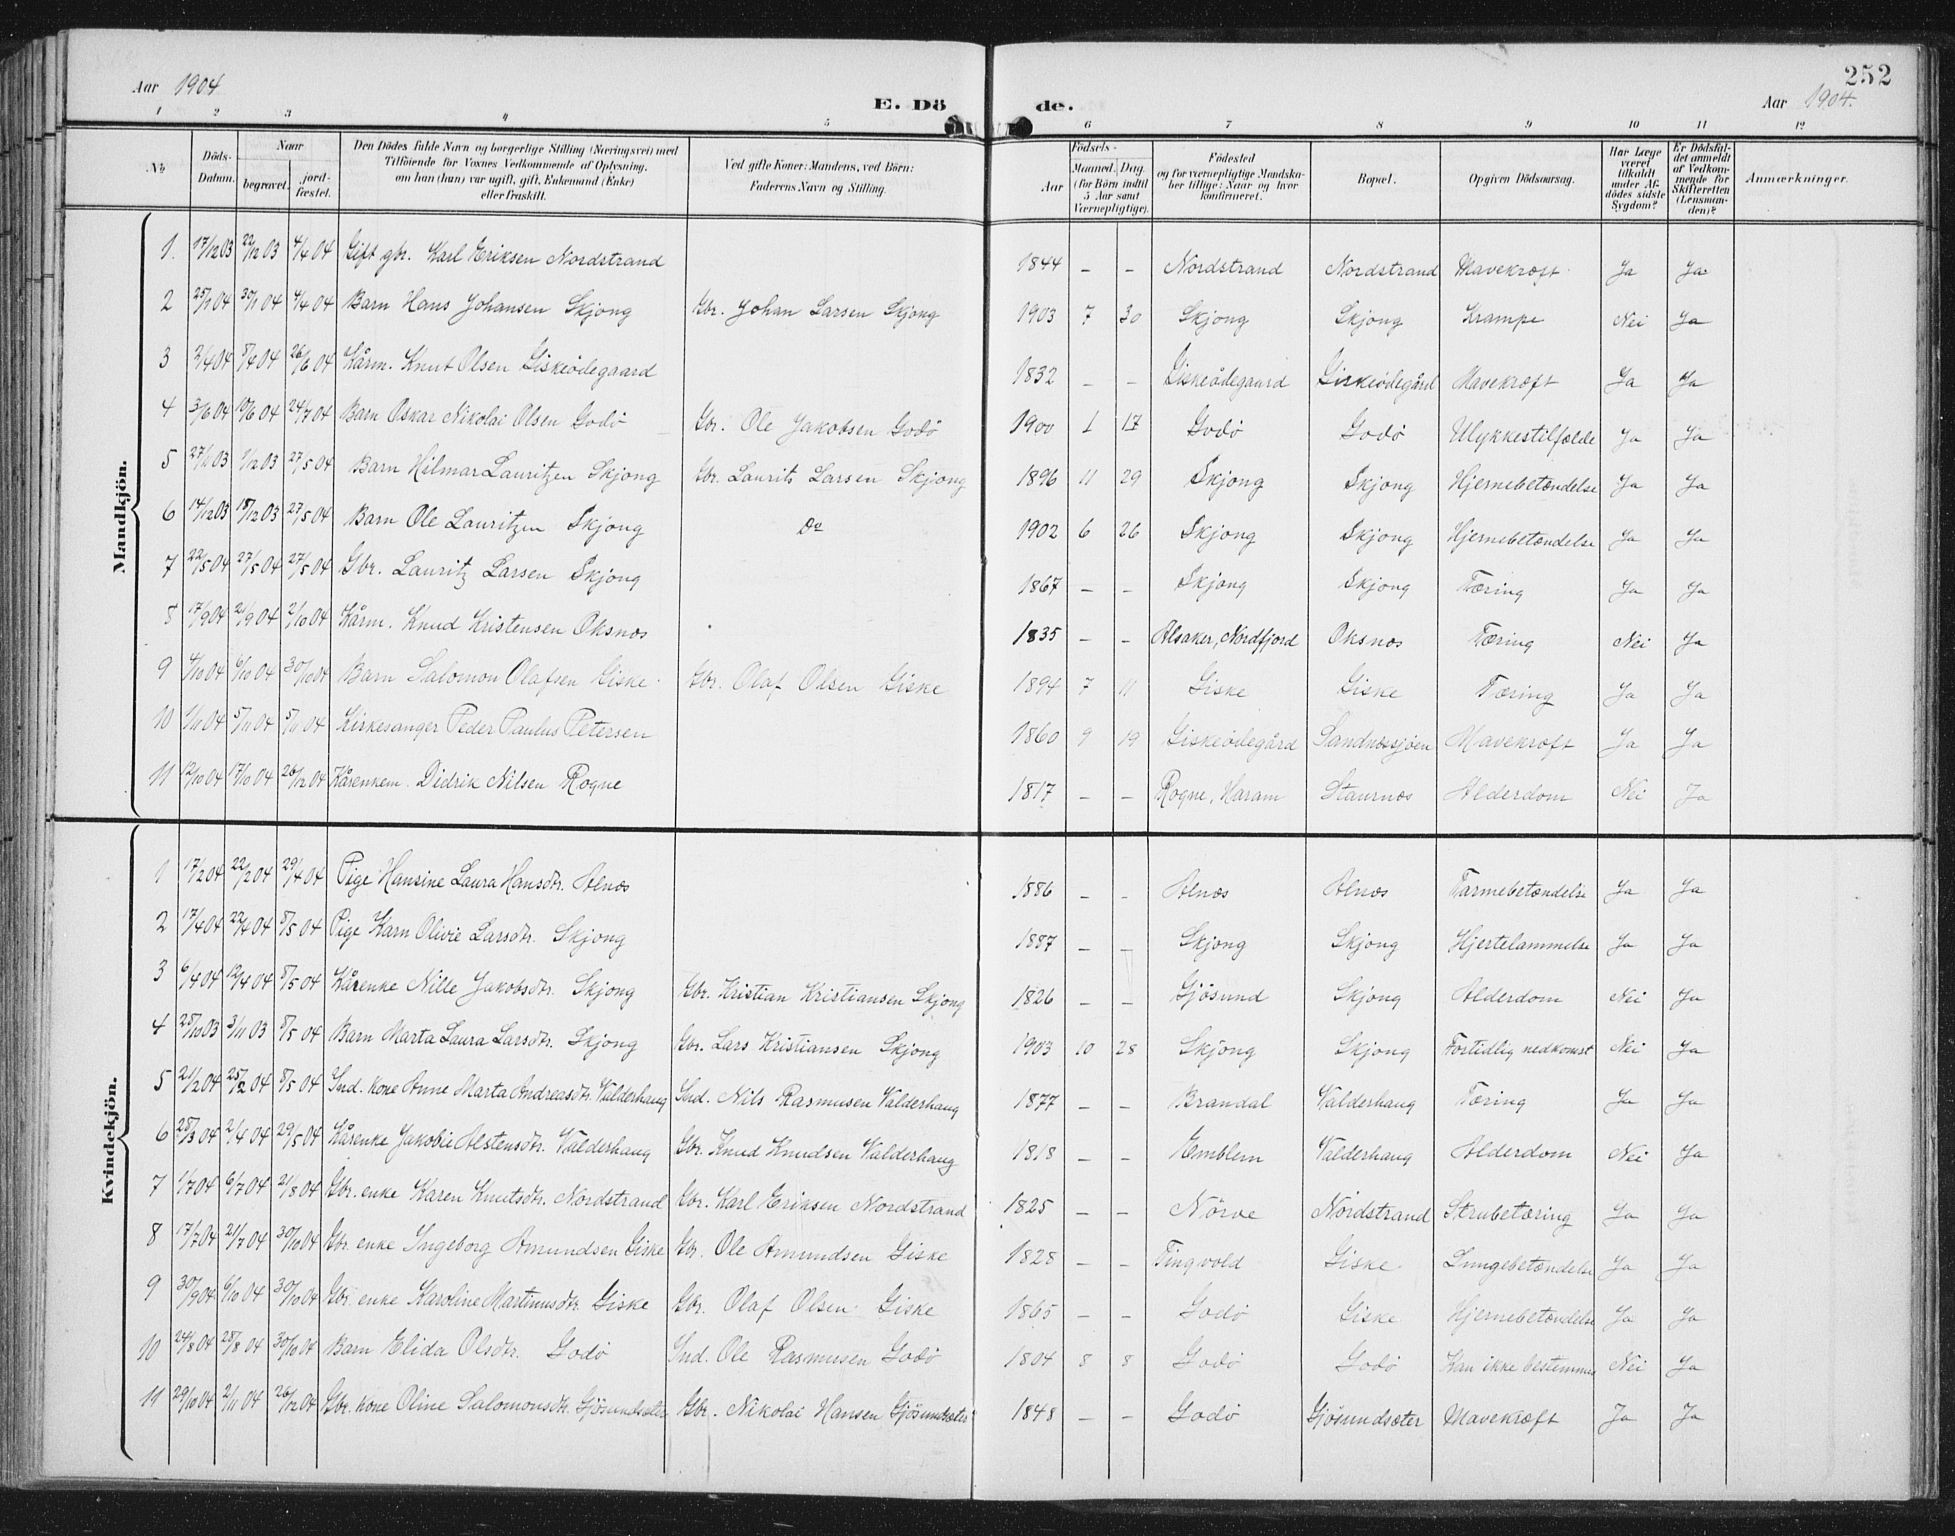 252
Aar 1904 E. Dö de. Aar 1904.
1 2 3 4 5 6 7 8 9 10 11 12
No Döds-Datum. Naar begravet. jord-fæstet. Den Dödes fulde Navn og borgerlige Stilling (Næringsvei) med Tilföiende for Voxnes Vedkommende af Oplysning, om han (hun) var ugift, gift, Enkemand (Enke) eller fraskilt. Ved gifte Koner: Mandens, ved Börn: Faderens Navn og Stilling. Födsels- Aar Maaned. Dag. (for Börn indtil 5 Aar samt Værnepligtige). Födested og for værnepligtige Mandskaber tillige: Naar og hvor konfirmeret. Bopæl. Opgiven Dödsaarsag. Har Læge været tilkaldt under Afdödes sidste Sygdom? Er Dödsfaldet anmeldt af Vedkommende for Skifteretten (Lensmanden)? Anmærkninger.
Mandkjön.
1. 17/12 03 22/12 03 4/4 04 Gift gbr. Karl Eriksen Nordstrand 1844 – – Nordstrand Nordstrand Mavekræft Ja Ja
2 25/1 04 30/1 04 4/4 04 Barn Hans Johansen Skjong Gbr. Johan Larsen Skjong 1903 7 30 Skjong Skjong Krampe Nei Ja
3 2/4 04 8/4 04 26/6 04 Kårm. Knut Olsen Giskeødegaard 1832 – – Giskeødegaard Giskeødegård Mavekræft Ja Ja
4 3/6 04 10/6 04 24/7 04 Barn Oskar Nikolai Olsen Godø Gbr. Ole Jakobsen Godø 1900 1 17 Godø Godø Ulykkestilfælde Ja Ja
5 27/11 03 1/12 03 27/5 04 Barn Hilmar Lauritzen Skjong Gbr. Laurits Larsen Skjong 1896 11 29 Skjong Skjong Hjernebetændelse Ja Ja
6 14/12 03 18/12 03 27/5 04 Barn Ole Lauritzen Skjong Do 1902 6 26 Skjong Skjong Hjernebetændelse Ja Ja
7 22/5 04 27/5 04 27/5 04 Gbr. Lauritz Larsen Skjong 1867 – – Skjong Skjong Tæring Ja Ja
8 17/9 04 21/9 04 2/10 04 Kårm. Knud Kristensen Oksnes 1835 – – Alsaker, Nordfjord Oksnes Tæring Nei Ja
9 4/10 04 6/10 04 30/10 04 Barn Salomon Olafsen Giske Gbr. Olaf Olsen Giske 1894 7 11 Giske Giske Tæring Ja Ja
10 1/11 04 5/11 04 5/11 04 Kirkesanger Peder Paulus Petersen 1860 9 19 Giskeødegård Sandnessjøen Mavekræft Ja Ja
11 12/10 04 17/10 04 26/12 04 Kårenkem. Didrik Nilsen Rogne 1817 – – Rogne, Haram Staurnes Alderdom Nei Ja
Kvindekjön.
1 17/2 04 22/2 04 29/4 04 Pige Hansine Laura Hansdtr. Alnes 1886 – – Alnes Alnes Tarmebetændelse Ja Ja
2 17/4 04 22/4 04 8/5 04 Pige Karn Olivie Larsdtr. Skjong 1887 – – Skjong Skjong Hjertelammelse Ja Ja
3 6/4 04 12/4 04 8/5 04 Kårenke Nille Jakobsdtr. Skjong Gbr. Kristian Kristiansen Skjong 1826 – – Gjösund Skjong Alderdom Nei Ja
4 28/10 03 3/11 03 8/5 04 Barn Marta Laura Larsdtr. Skjong Gbr. Lars Kristiansen Skjong 1903 10 28 Skjong Skjong Fortidlig nedkomst Nei Ja
5 21/2 04 25/2 04 8/5 04 Ind. kone Anne Marta Andreasdtr. Valderhaug Ind. Nils Rasmusen Valderhaug 1877 – – Brandal Valderhaug Tæring Ja Ja
6 28/3 04 2/4 04 29/5 04 Kårenke Jakobie Alstensdtr. Valderhaug Gbr. Knud Knudsen Valderhaug 1818 – – Emblem Valderhaug Alderdom Nei Ja
7 1/7 04 6/7 04 21/8 04 Gbr. enke Karen Knutsdtr. Nordstrand Gbr. Karl Eriksen Nordstrand 1825 – – Nörve Nordstrand Strubetæring Ja Ja
8 17/7 04 21/7 04 30/10 04 Gbr. enke Ingeborg Amundsen Giske Gbr. Ole Amundsen Giske 1828 – – Tingvold Giske Lungebetændelse Ja Ja
9 30/9 04 6/10 04 30/10 04 Gbr. enke Karoline Martinusdtr. Giske Gbr. Olaf Olsen Giske 1865 – – Godø Giske Hjernebetændelse Ja Ja
10 24/8 04 28/8 04 30/10 04 Barn Elida Olsdtr. Godø Ind. Ole Rasmusen Godø 1804 8 8 Godø Godø Kan ikke bestemmes Nei Ja
11 29/10 04 2/11 04 26/12 04 Gbr. kone Oline Salomonsdtr. Gjösundsæter Gbr. Nikolai Hansen Gjösundsæter 1848 – – Godø Gjösundsæter Mavekræft Ja Ja